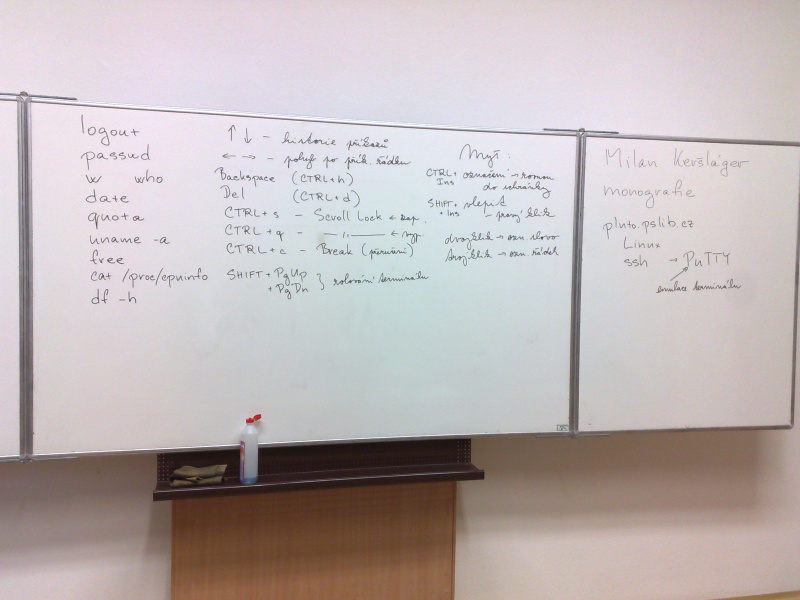 logout
passwd
w who
date
quota
uname -a
free
cat /proc/cpuinfo
df -h
↑ ↓ - historie příkazů
← → - pohyb po přík. řádku
Backspace (CTRL+h)
Del (CTRL+d)
CTRL + s - Scroll Lock ← zap.
CTRL + q - —〃— ← vyp.
CTRL + c - Break (přerušení)
SHIFT + PgUp
+ PgDn } rolování terminálu
Myš:
CTRL + Ins označení → rovnou
do schránky
SHIFT + Ins vlepit
- pravý klik
dvojklik → ozn. slovo
trojklik → ozn. řádek
Milan Keršláger
monografie
pluto.pslib.cz
Linux
ssh → PuTTY
emulace terminálu